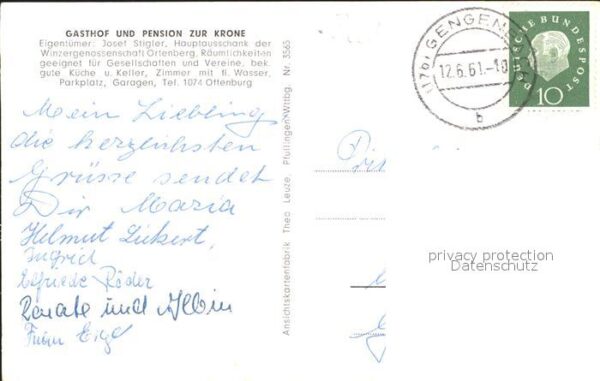 GASTHOF UND PENSION ZUR KRONE
Eigentümer: Josef Stigler, Hauptausschank der
Winzergenossenschaft Ortenberg. Räumlichkeiten
geeignet für Gesellschaften und Vereine, bek.
gute Küche u. Keller, Zimmer mit fl. Wasser,
Parkplatz, Garagen, Tel. 1074 Offenburg
Mein Liebling
die herzlichsten
Grüsse sendet
Dir Maria
Helmut
Ingrid
Elfriede Röder
Renate und Albin
Ansichtskartenfabrik Theo Leuze, Pfullingen-Wttbg. Nr. 3565
(17b) GENGENB
12.6.61.-18
b
DEUTSCHE BUNDESPOST
10
privacy protection
Datenschutz